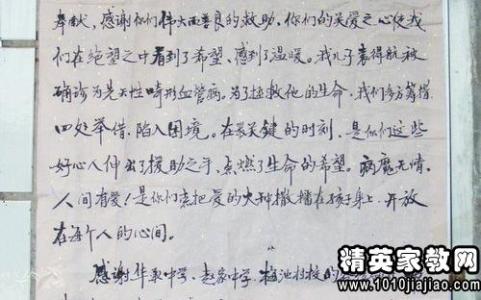 奉献，感谢你们伟大而善良的救助。你们的关爱之心使我
们在绝望之中看到了希望、感到了温暖。我儿子得航被
确诊为先天性畸形血管病，为了拯救他的生命，我们多方筹借
四处举借，陷入困境。在最关键的时刻，是你们这些
好心人伸出了援助之手，点燃了生命的希望。病魔无情，
人间有爱！是你们亲把爱的火种撒播在孩子身上，开放
在每个人的心间。
感谢华泉中学、赵家中学、梅池村校的
精英家教网
www.1010jiajiao.com